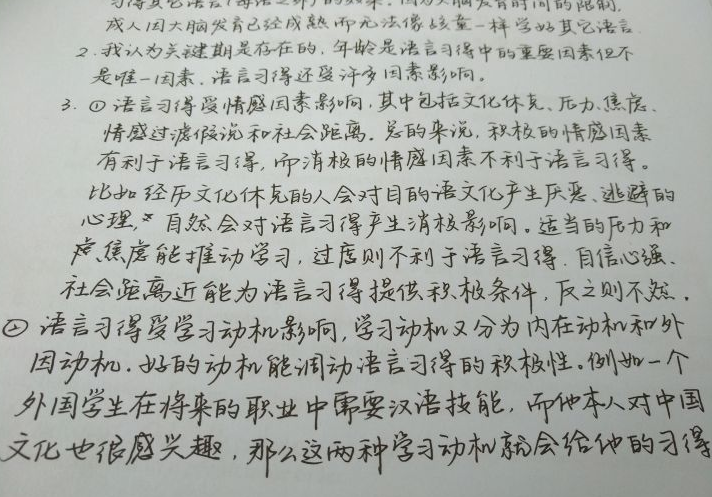 习得其它语言(母语之外)的效果。因为大脑发育时间的限制,
成人因大脑发育已经成熟而无法像孩童一样学好其它语言.
2. 我认为关键期是存在的,年龄是语言习得中的重要因素但不
是唯一因素.语言习得还受许多因素影响。
3. ① 语言习得受情感因素影响,其中包括文化休克、压力、焦虑、
情感过滤假说和社会距离.总的来说,积极的情感因素
有利于语言习得,而消极的情感因素不利于语言习得。
比如经历文化休克的人会对目的语文化产生厌恶、逃避的
心理,自然会对语言习得产生消极影响。适当的压力和
焦虑能推动学习,过度则不利于语言习得.自信心强、
社会距离近能为语言习得提供积极条件,反之则不然.
② 语言习得受学习动机影响,学习动机又分为内在动机和外
因动机.好的动机能调动语言习得的积极性。例如一个
外国学生在将来的职业中需要汉语技能,而他本人对中国
文化也很感兴趣,那么这两种学习动机就会给他的习得